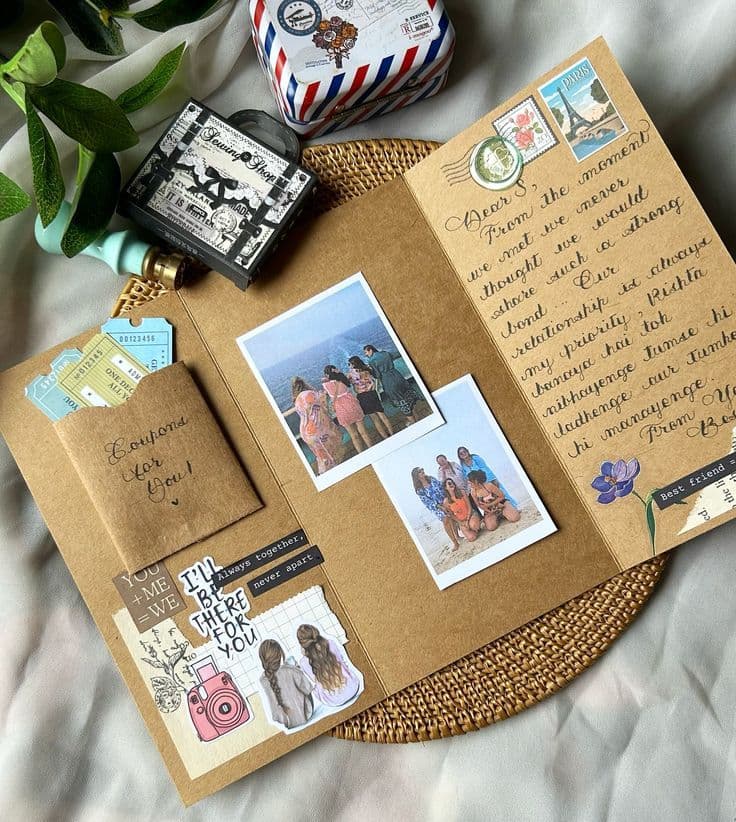 Sewing Shop
IT IS
PARIS
Dear S,
From the moment
we met we never
thought we would
share such a strong
bond... Our
relationship is always
my priority, Rishta
banaya hai toh
nibhayenge tumse hi
ladhenge aur tumhe
hi manayenge.
From Yo
Bes
Best friend =
0012345
N°0012345
Coupons
for
You!
YOU
+ME
=WE
I'LL
BE
THERE
FOR
YOU
Always together,
never apart.